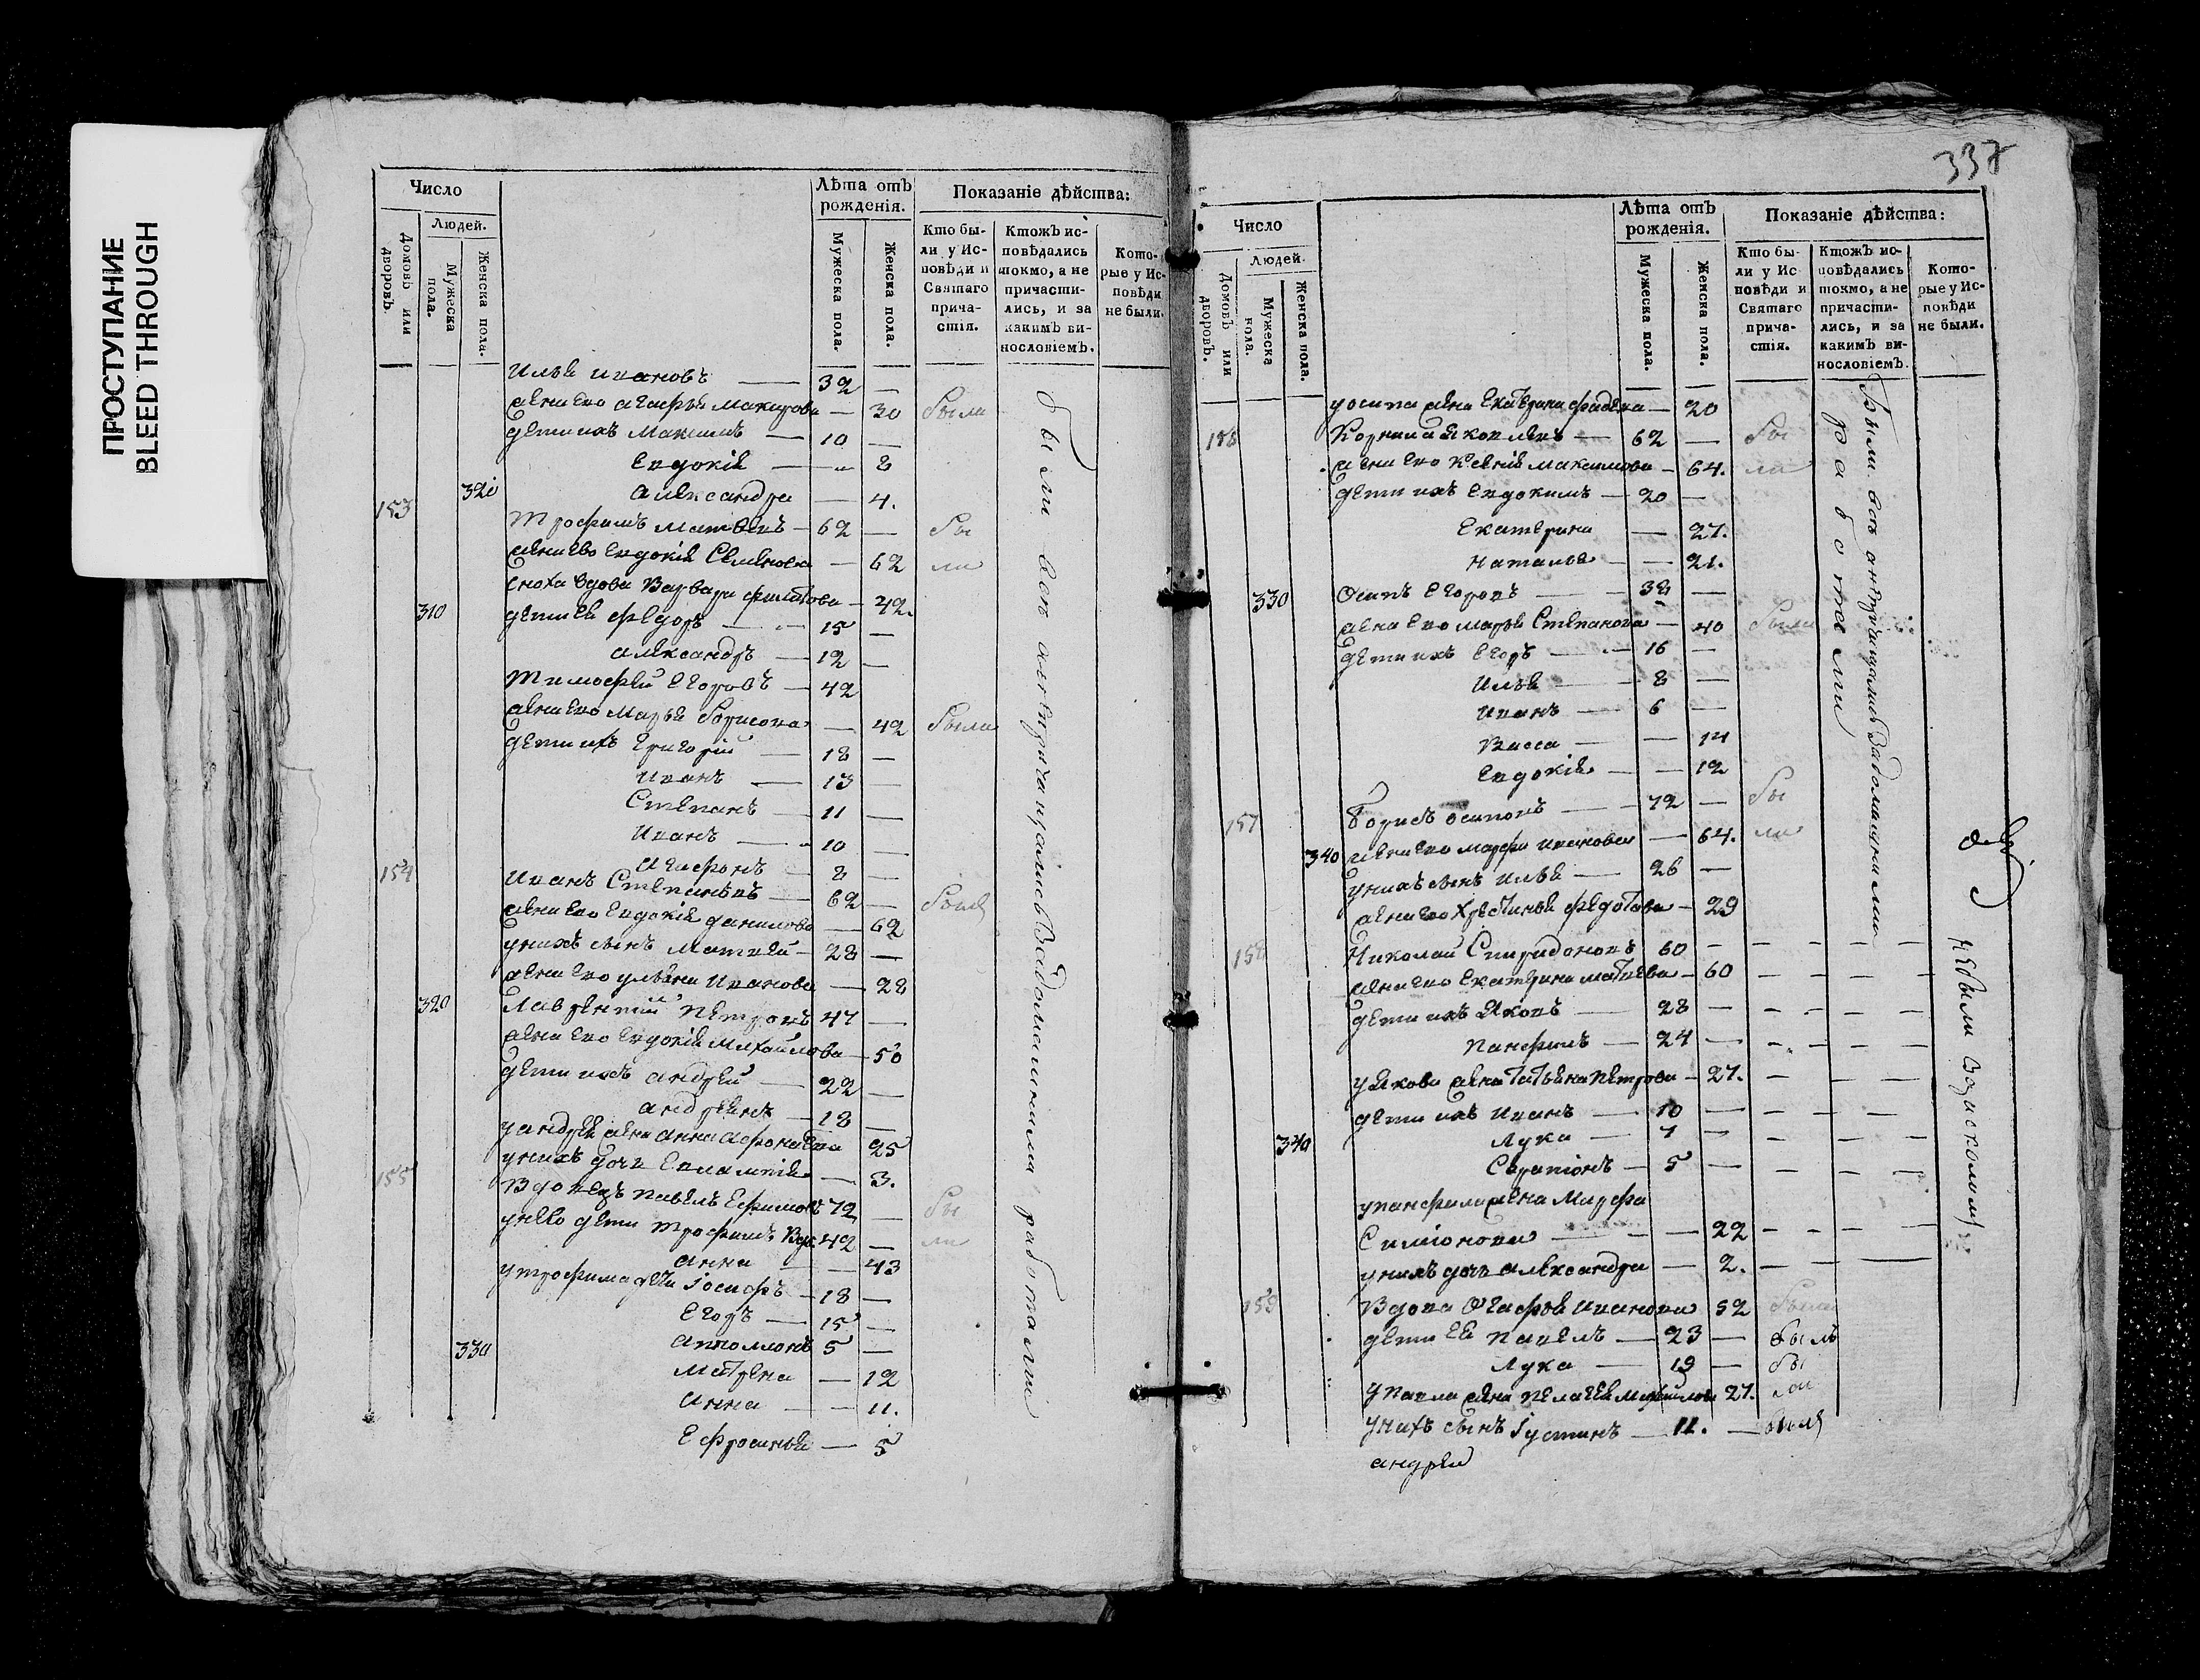 ПРОСТУПАНИЕ
BLEED THROUGH
Число
Людей.
Домовъ или дворовъ.
Мужеска пола.
Женска пола.
Лѣта отъ рожденія.
Мужеска пола.
Женска пола.
Показаніе дѣйства:
Кто были у Исповѣди и Святаго причастія.
Ктожъ исповѣдались токмо, а не причастились, и за какимъ винословіемъ.
Которые у Исповѣди не были.
Илья Ивановъ — 32 —
жена ево Агафья — 30 были
дети ихъ Максимъ — 10 —
Евдокія — 8
320 Александра — 4.
153 Трофимъ Матвевъ — 62 — бы
жена ево Евдокія Семенова — 62 ли
сноха вдова Варвара Филатова — 42.
310 дети ея Федоръ — 15 —
Александръ — 12 —
Тимофей Егоровъ — 42
жена ево Марья Борисова — 42 были
дети ихъ Григорій — 18 —
Иванъ — 13 —
Степанъ — 11 —
Иванъ — 10 —
Агафонъ — 8 —
154 Иванъ Степановъ — 62 — были
жена ево Евдокія Данилова — 62
у нихъ сынъ Матвей — 28 —
жена ево Ульяна Иванова — 28
320 Лаврентий Петровъ 47 —
жена ево Евдокія Михайлова — 50
дети ихъ Андрей — 22 —
Андреянъ — 18 —
у Андрея жена Анна Афонаева 25
у нихъ дочь Евлампія — 3.
155 Вдовецъ Павелъ Ефимовъ 72 — бы
у нево дети Трофимъ Вдо: 42 — ли
Анна — 43
у Трофима дети Іосифъ — 18 —
Егоръ — 15 —
330 Апполлонъ 5 —
Матрена — 12
Анна — 11.
Ефросинья — 5
были
337
Число
Людей.
Домовъ или дворовъ.
Мужеска пола.
Женска пола.
Лѣта отъ рожденія.
Мужеска пола.
Женска пола.
Показаніе дѣйства:
Кто были у Исповѣди и Святаго причастія.
Ктожъ исповѣдались токмо, а не причастились, и за какимъ винословіемъ.
Которые у Исповѣди не были.
у Осипа жена Екатерина — 20
Корнила Яковлевъ — 62 — бы
жена ево Ксенія Максимова — 64. ли
дети ихъ Евдокимъ — 20 —
Екатерина — 27.
Наталья — 21.
330 Осипъ Егоровъ — 38 —
жена ево Марья Степанова — 40 были
дети ихъ Егоръ — 16 —
Илья — 8 —
Иванъ — 6 —
Васса — 14
Евдокія — 12
157 Борисъ Осиповъ — 72 — бы
340 жена ево Марфа Иванова — 64. ли
у нихъ сынъ Илья — 26 —
жена ево Хрестинья Федотова — 29
158 Николай Спиридоновъ 60 —
жена ево Екатерина Матвева — 60
дети ихъ Яковъ — 28 —
Панфилъ — 24 —
у Якова жена Татьяна Петрова — 27.
дети ихъ Иванъ — 10 —
340 Лука — 7 —
Серапіонъ — 5 —
у Панфила жена Марфа
Симіонова — 22
у нихъ дочь Александра — 2.
159 Вдова Агафья Иванова 52 были
дети ея Павелъ — 23 — былъ
Лука — 19 — бы
у Павла жена Пелагея Михайлова 27.
у нихъ сынъ Іустинъ — 11. — были
Андрей
работали
не были